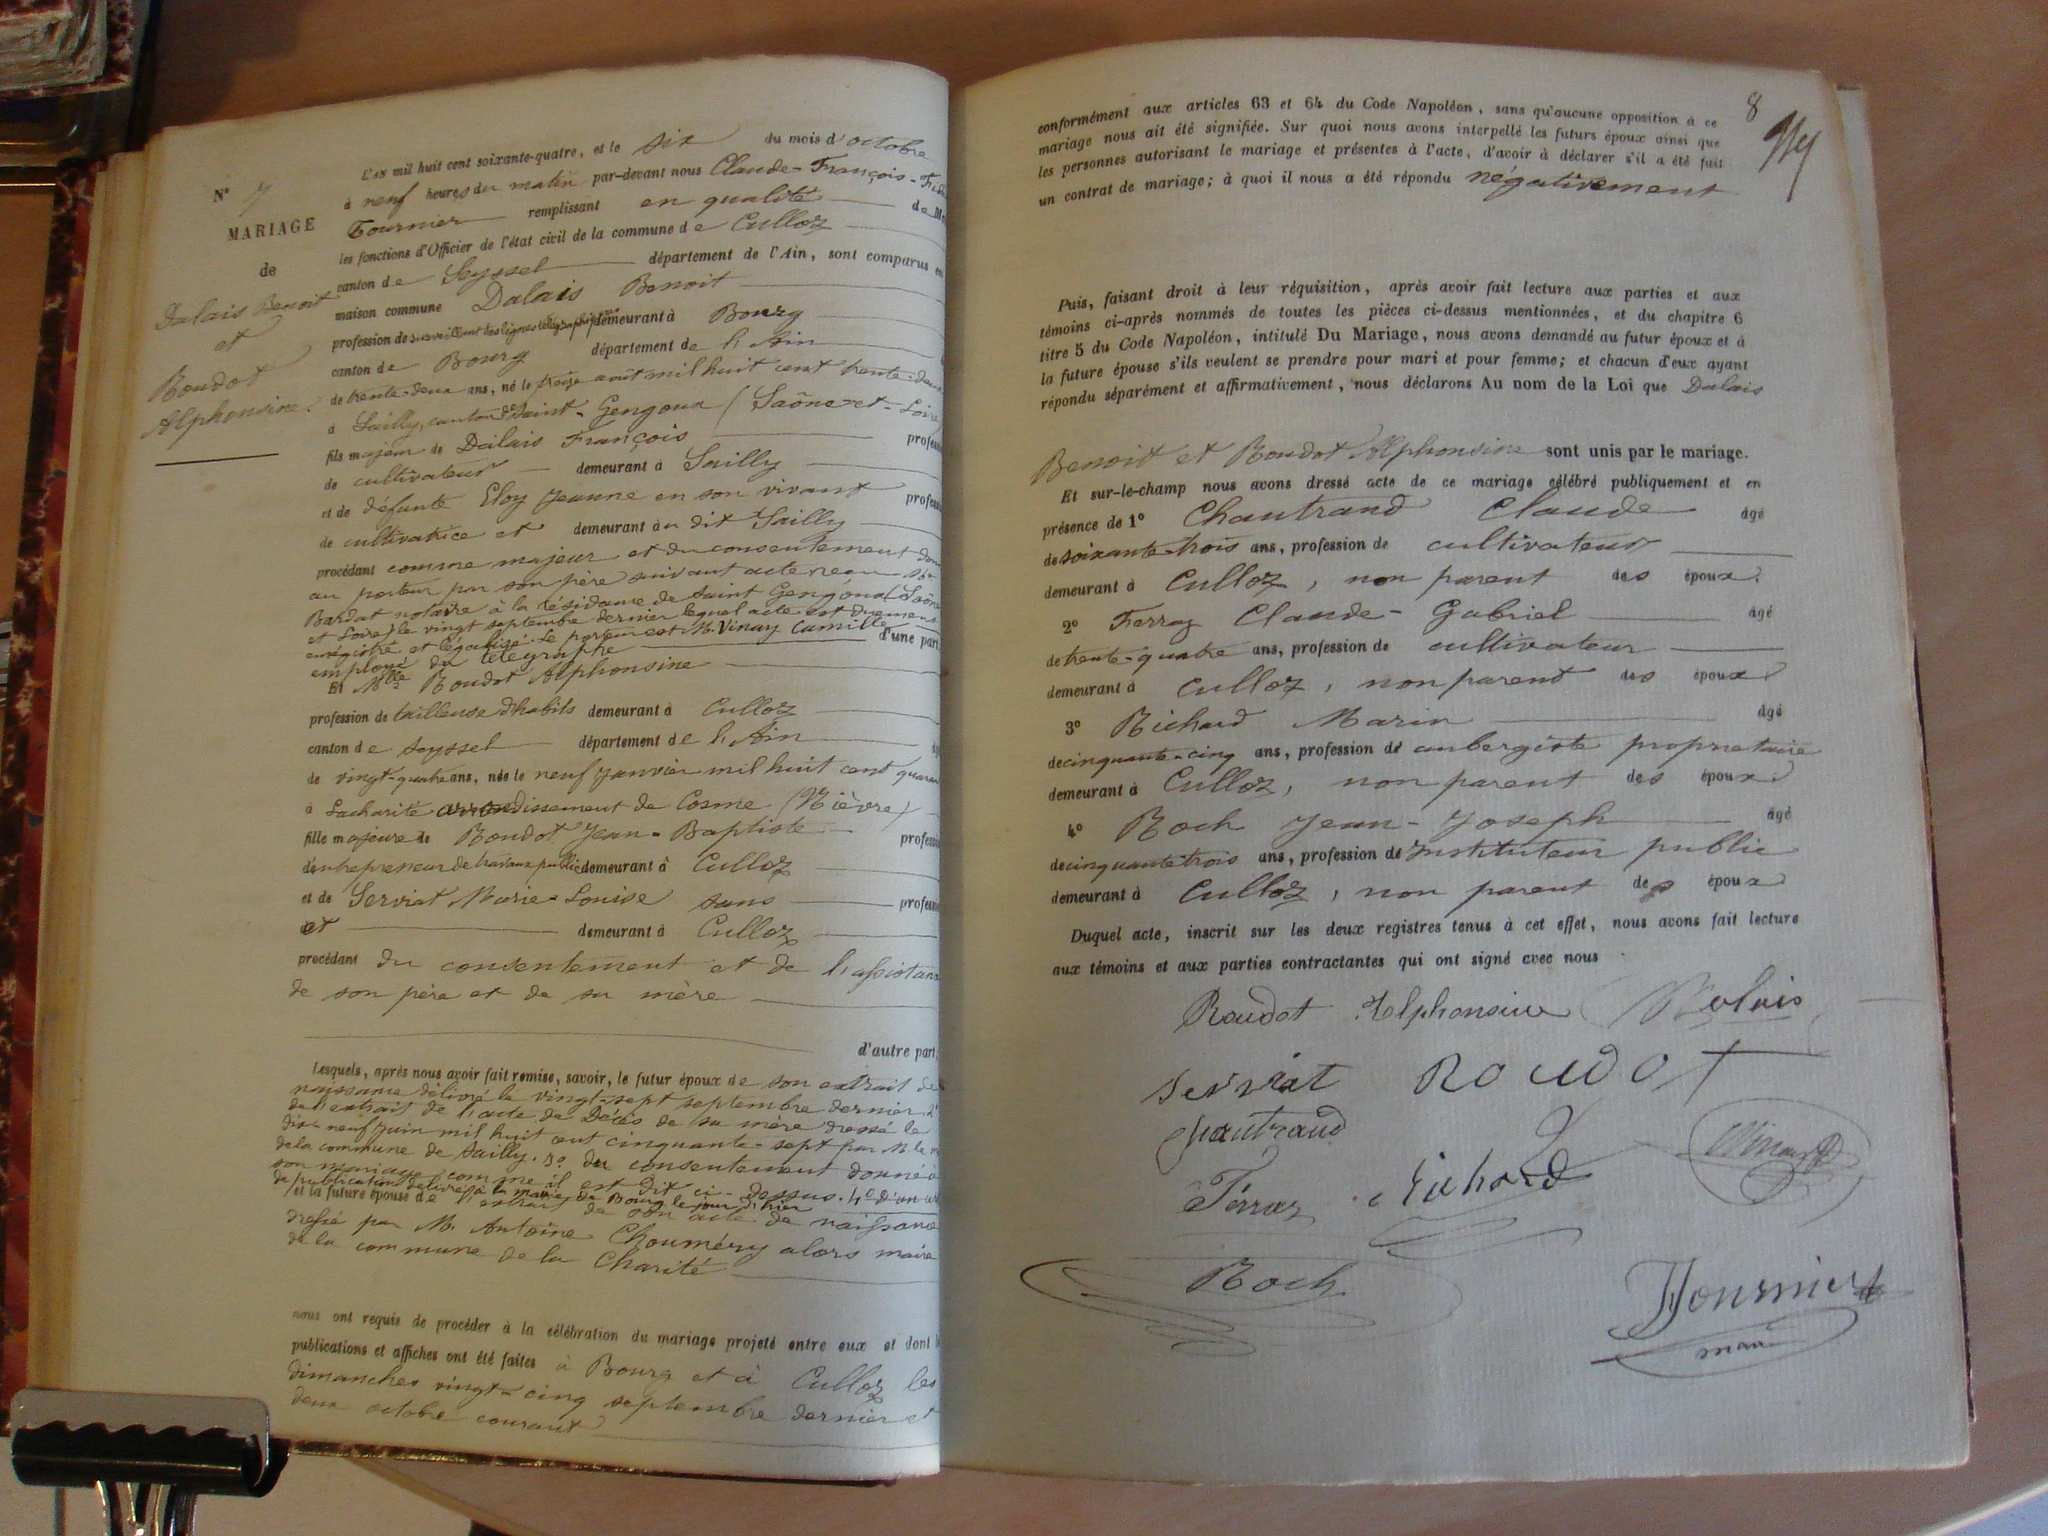 N° 7
MARIAGE
de
Dalais Benoit
et
Roudot
Alphonsine.
L'an mil huit cent soixante-quatre, et le six du mois d'octobre
à neuf heures du matin par-devant nous Claude-François-
Fournier remplissant en qualité de
les fonctions d'Officier de l'état civil de la commune de Culloz
canton de Seyssel département de l'Ain, sont comparus en
maison commune Dalais Benoit
profession de surveillant des lignes télégraphiques demeurant à Bourg
canton de Bourg département de l'Ain
de trente-deux ans, né le treize août mil huit cent trente-deux
à Sailly, canton de Saint-Gengoux (Saône-et-Loire)
fils majeur de Dalais François
de cultivateur demeurant à Sailly
et de défunte Eloy Jeanne en son vivant
de cultivatrice et demeurant au dit Sailly
procédant comme majeur et du consentement
au porteur par son père suivant acte reçu
Bardat notaire à la résidance de Saint Gengoux (Saône
et Loire) le vingt septembre dernier lequel acte est duement
enrégistré et légalisé. Le porteur est M. Vinay Camille d'une part
employé du télégraphe
Et Mlle Roudot Alphonsine
profession de tailleuse d'habits demeurant à Culloz
canton de Seyssel département de l'Ain
de vingt-quatre ans, née le neuf Janvier mil huit cent
à Lacharité arrondissement de Cosme (Nièvre)
fille majeure de Roudot Jean-Baptiste
d'entrepreneur de travaux public demeurant à Culloz
et de Serviat Marie-Louise sans
et demeurant à Culloz
procédant du consentement et de
de son père et de sa mère
d'autre part;
Lesquels, après nous avoir fait remise, savoir, le futur époux de son extrait de
naissance délivré le vingt-sept septembre dernier, 2°
de l'extrait de l'acte de Décès de sa mère dressé le
dix-neuf juin mil huit cent cinquante-sept par M. le
de la commune de Sailly. 3° du consentement donné à
son mariage comme il est dit ci-dessus. 4° d'un
de publication délivré à la mairie de Bourg le jour d'hier
et la future épouse de l'extrait de son acte de naissance
dressé par M. Antoine Chouméry alors maire
de la commune de la Charité
nous ont requis de procéder à la célébration du mariage projeté entre eux et dont
publications et affiches ont été faites à Bourg et à Culloz les
dimanches vingt-cinq septembre dernier et
deux octobre courant
8
conformément aux articles 63 et 64 du Code Napoléon, sans qu'aucune opposition à ce
mariage nous ait été signifiée. Sur quoi nous avons interpellé les futurs époux ainsi que
les personnes autorisant le mariage et présentes à l'acte, d'avoir à déclarer s'il a été fait
un contrat de mariage; à quoi il nous a été répondu négativement
Puis, faisant droit à leur réquisition, après avoir fait lecture aux parties et aux
témoins ci-après nommés de toutes les pièces ci-dessus mentionnées, et du chapitre 6
titre 5 du Code Napoléon, intitulé Du Mariage, nous avons demandé au futur époux et à
la future épouse s'ils veulent se prendre pour mari et pour femme; et chacun d'eux ayant
répondu séparément et affirmativement, nous déclarons Au nom de la Loi que Dalais
Benoit et Roudot Alphonsine sont unis par le mariage.
Et sur-le-champ nous avons dressé acte de ce mariage célébré publiquement et en
présence de 1° Chautrand Claude âgé
de soixante-trois ans, profession de cultivateur
demeurant à Culloz, non parent des époux.
2° Ferraz Claude-Gabriel âgé
de trente-quatre ans, profession de cultivateur
demeurant à Culloz, non parent des époux
3° Richard Marin âgé
de cinquante-cinq ans, profession de aubergiste propriétaire
demeurant à Culloz, non parent des époux
4° Roch Jean-Joseph âgé
de cinquante trois ans, profession de Instituteur public
demeurant à Culloz, non parent des époux
Duquel acte, inscrit sur les deux registres tenus à cet effet, nous avons fait lecture
aux témoins et aux parties contractantes qui ont signé avec nous
Roudot Alphonsine Dalais
Serviat ROUDOT
Chautrand
Ferraz Richard Vinay
Roch
Fournier
maire